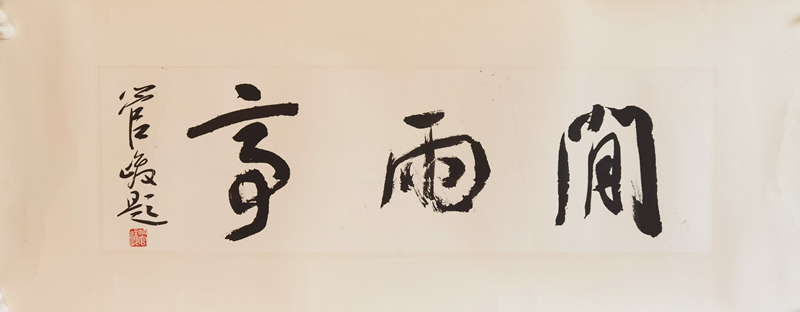 聞雨亭
管峻題